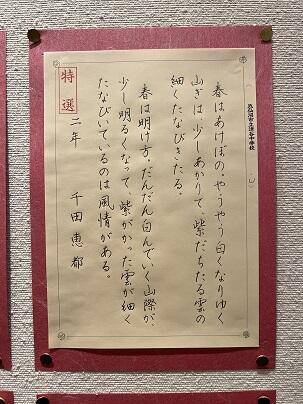 春はあけぼの。やうやう白くなりゆく
山ぎは、少しあかりて、紫だちたる雲の
細くたなびきたる。
春は明け方。だんだん白んでいく山際が、
少し明るくなって、紫がかった雲が細く
たなびいているのは風情がある。
特選
二年 千田恵都